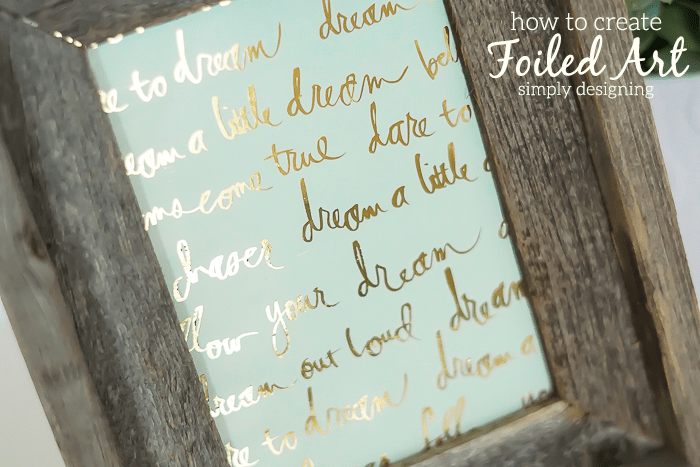 how to create
Foiled Art
simply designing
dream
to dream dream
a little dream
come true dare to
dream a little
chaser
your dream
dream out loud dream
to dream dream a